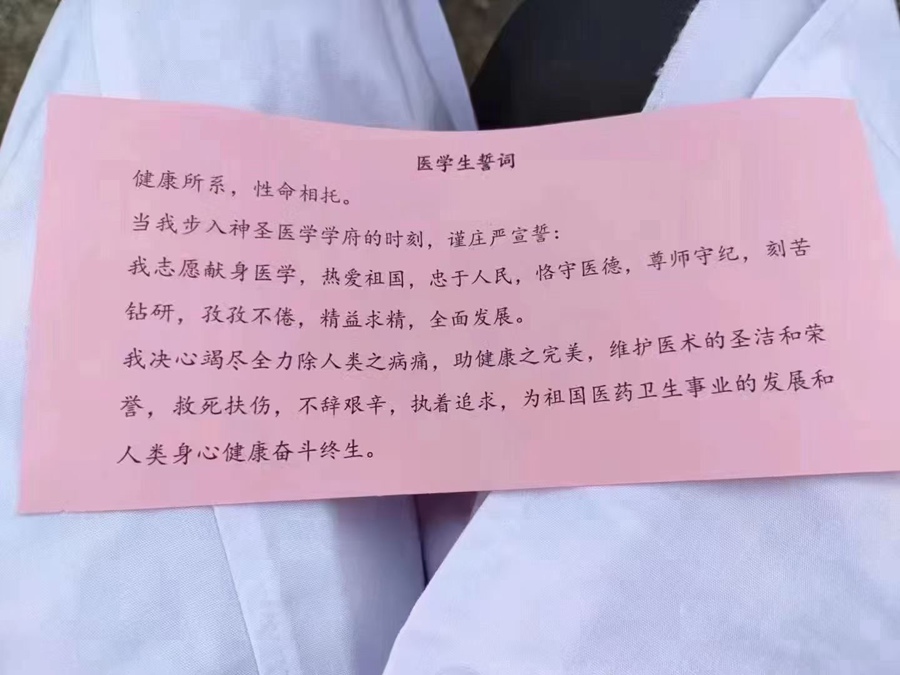 医学生誓词
健康所系，性命相托。
当我步入神圣医学学府的时刻，谨庄严宣誓：
我志愿献身医学，热爱祖国，忠于人民，恪守医德，尊师守纪，刻苦
钻研，孜孜不倦，精益求精，全面发展。
我决心竭尽全力除人类之病痛，助健康之完美，维护医术的圣洁和荣
誉，救死扶伤，不辞艰辛，执着追求，为祖国医药卫生事业的发展和
人类身心健康奋斗终生。